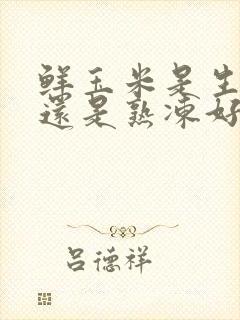 鲜玉米是生
还是熟凍好
吕德祥